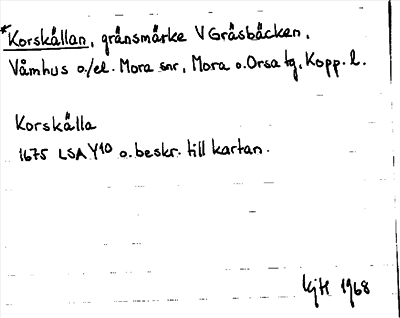 *Korskällan, gränsmärke V Gräsbäcken,
Våmhus o./el. Mora snr, Mora o. Orsa tg, Kopp. l.
Korskälla
1675 LSA Y10 o. beskr. till kartan.
KjH 1968